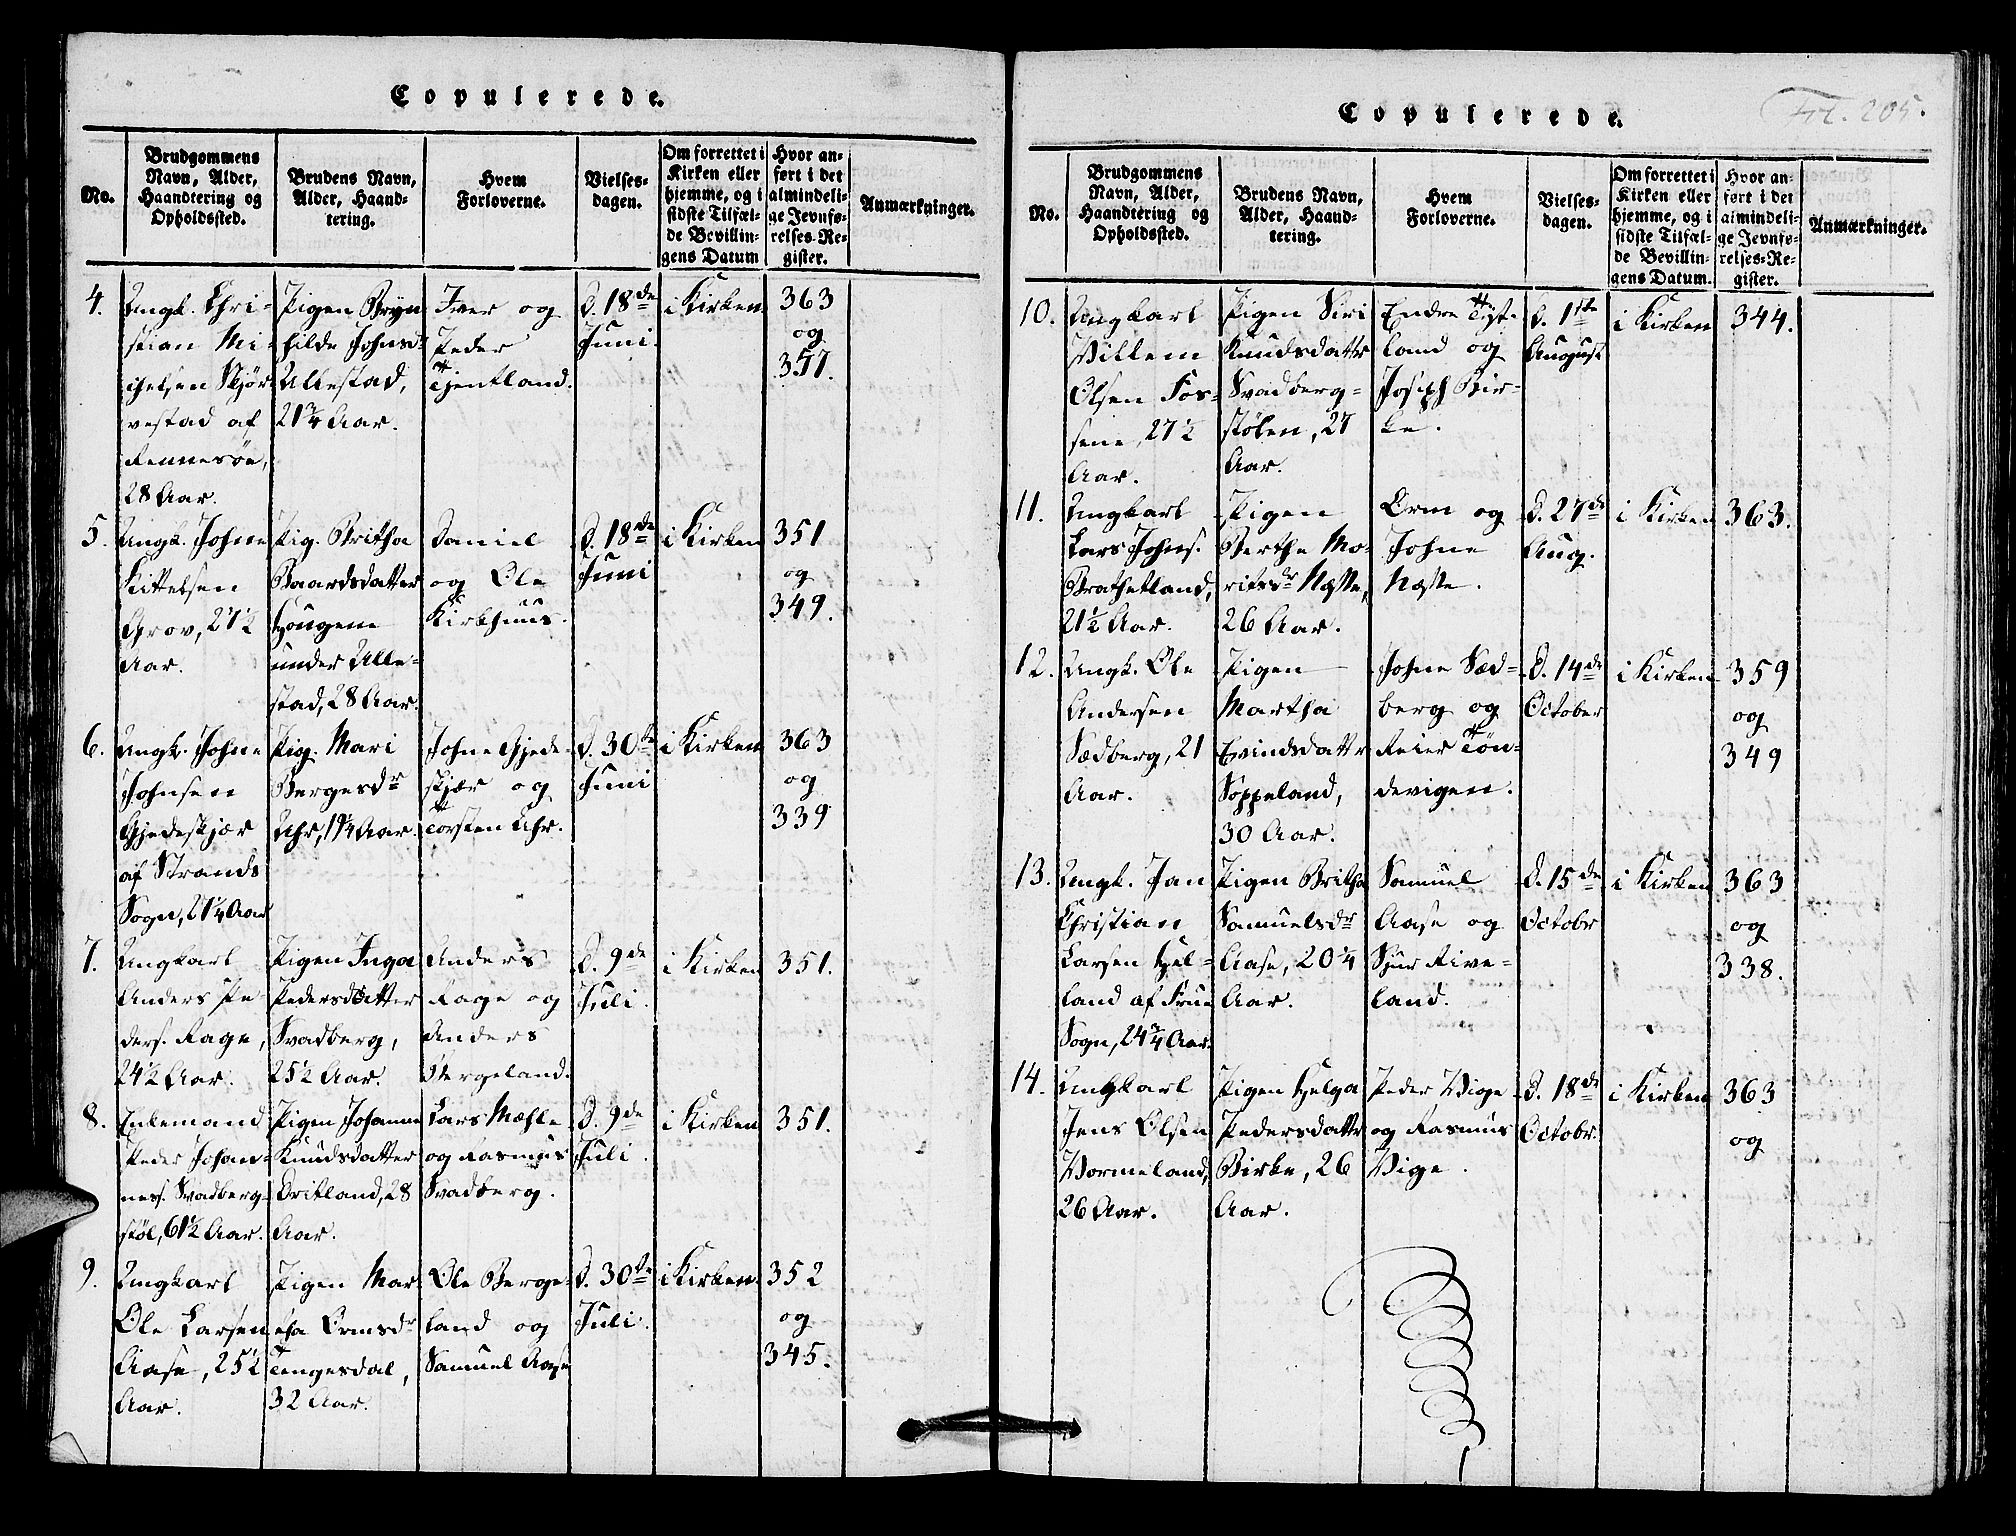 Copulerede.
No.
Brudgommens
Navn, Alder,
Haandtering og
Opholdssted.
Brudens Navn,
Alder, Haand-
tering.
Hvem
Forloverne.
Vielses-
dagen.
Om forrettet i
Kirken eller
hjemme, og i
sidste Tilfæl-
de Bevillin-
gens Datum
Hvor an-
ført i det
almindeli-
ge Jevnfø-
relses-Re-
gister.
Anmærkninger.
4.
Ungk. Chri-
stian Mi-
chelsen Skjør-
vestad af
Rennesøe,
28 Aar.
Pigen Bryn-
hilde Johnsd:
Ullestad,
21¾ Aar.
Iver og
Peder
Tjentland.
D. 18de
Juni.
i Kirken
363
og
357.
5.
Ungk. Johne
Kittelsen
Grov, 27½
Aar.
Pig. Britha
Baardsdatter
Hougene
under Ulle-
stad, 28 Aar.
Daniel
og Ole
Kirkhuus.
D. 18de
Juni
i Kirken
351
og
349.
6.
Ungk. Johne
Johnsen
Gjedeskjær
af Strands
Sogn, 21¼ Aar
Pig. Mari
Bergesdr
Uhr, 19¼ Aar.
Johne Gjede-
skjær og
Torsten Uhr.
D. 30te
Juni
i Kirken
363
og
339
7.
Ungkarl
Anders Pe-
ders. Rage,
24½ Aar.
Pigen Inga
Pedersdatter
Svadberg,
25½ Aar.
Anders
Rage og
Anders
Bergeland.
D. 9de
Juli.
i Kirken
351.
8.
Enkemand
Peder Johan-
nes. Svadberg-
støl, 61½ Aar.
Pigen Johanne
Knudsdatter
Dritland, 28
Aar.
Lars Mæhle
og Rasmus
Svadberg.
D. 9de
Juli.
i Kirken
351.
9.
Ungkarl
Ole Larsen
Aase, 25½
Aar.
Pigen Mar-
tha Ormsdr
Tengesdal,
32 Aar.
Ole Berge-
land og
Samuel Aase
D. 30te
Juli.
i Kirken.
352
og
345.
Copulerede.
205.
No.
Brudgommens
Navn, Alder,
Haandtering og
Opholdssted.
Brudens Navn,
Alder, Haand-
tering.
Hvem
Forloverne.
Vielses-
dagen.
Om forrettet i
Kirken eller
hjemme, og i
sidste Tilfæl-
de Bevillin-
gens Datum.
Hvor an-
ført i det
almindeli-
ge Jevnfø-
relses-Re-
gister.
Anmærkninger.
10.
Ungkarl
Villem
Olsen Fos-
sene, 27½
Aar.
Pigen Siri
Knudsdattr
Svadberg-
stølen, 27
Aar.
Endre Tyt-
land og
Joseph Bir-
ke.
D. 1ste
August
i Kirken
344.
11.
Ungkarl
Lars Johns.
Brathetland,
21½ Aar.
Pigen
Berthe Mo-
ritsdr Næste,
26 Aar.
Orm og
Johne
Næste.
D. 27de
Aug.
i Kirken
363.
12.
Ungk. Ole
Andersen
Sædberg, 21
Aar.
Pigen
Martha
Evindsdattr
Soppeland,
30 Aar.
Johne Sæd-
berg og
Reier Tøn-
devigen.
D. 14de
October
i Kirken
359
og
349
13.
Ungk. Jan
Christian
Larsen Hel-
land af Frue
Sogn, 24¾ Aar.
Pigen Britha
Samuelsdr
Aase, 20¼
Aar.
Samuel
Aase og
Sjur Rive-
land.
D. 15de
Octobr
i Kirken
363
og
338.
14.
Ungkarl
Jens Olsen
Vormeland,
26 Aar.
Pigen Helga
Pedersdattr
Birke, 26
Aar.
Peder Vige
og Rasmus
Vige.
D. 18de
Octobr.
i Kirken
363
og